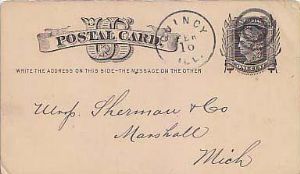 U S
POSTAL CARD.
QUINCY
10
ILL.
ONE CENT
WRITE THE ADDRESS ON THIS SIDE-THE MESSAGE ON THE OTHER
Sherman & Co
Marshall
Mich